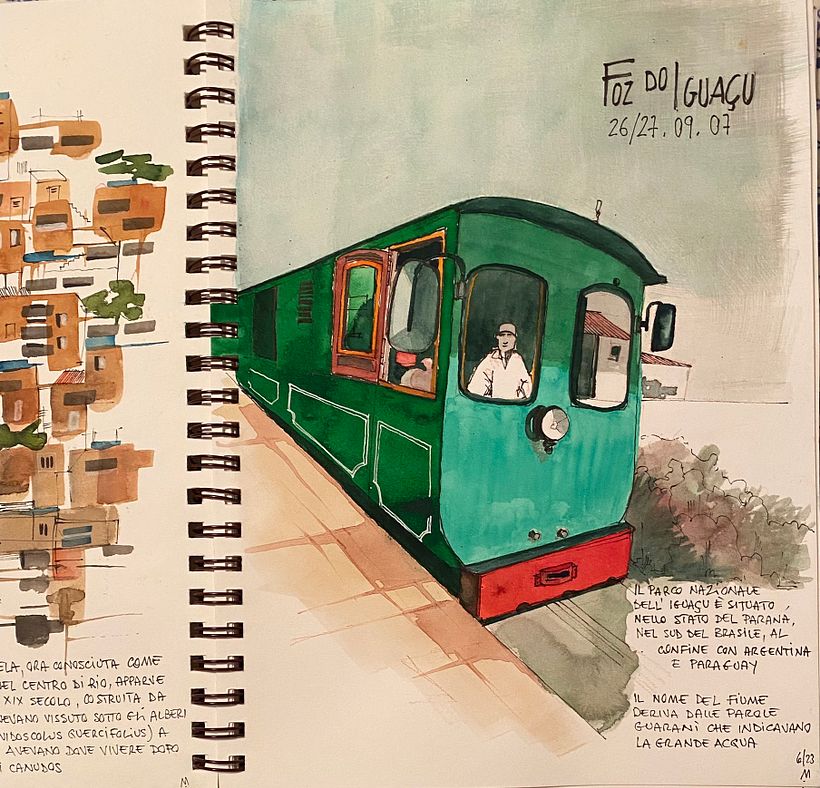 ELA, ORA CONOSCIUTA COME
EL CENTRO DI RIO, APPARVE
XIX SECOLO, COSTRUITA DA
EVANO VISSUTO SOTTO GLI ALBERI
NIDOSCOLUS QUERCIFOLIUS) A
AVEVANO DOVE VIVERE DOPO
I CANUDOS
M
FOZ DO IGUAÇU
26/27.09.07
IL PARCO NAZIONALE
DELL'IGUAÇU È SITUATO,
NELLO STATO DEL PARANA,
NEL SUD DEL BRASILE, AL
CONFINE CON ARGENTINA
E PARAGUAY
IL NOME DEL FIUME
DERIVA DALLE PAROLE
GUARANÌ CHE INDICAVANO
LA GRANDE ACQUA
6/23
M